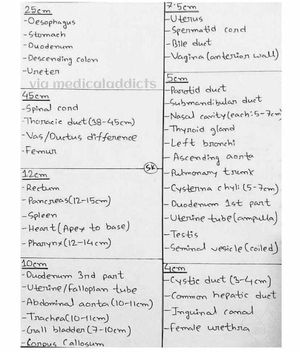 25cm
-Oesophagus
-Stomach
-Duodenum
-Descending colon
-Ureter
via medicaladdicts
45cm
-Spinal cord
-Thoracic duct (38-45cm)
-Vas/Ductus difference
-Femur
12cm
-Rectum
-Pancreas(12-15cm)
-Spleen
-Heart (Apex to base)
-Pharynx(12-14cm)
10cm
-Duodenum 3rd part
-Uterine/Fallopian tube
-Abdominal aorta (10-11cm)
-Trachea(10-11cm)
-Gall bladder(7-10cm)
-Corpus Callosum
SK
7.5cm
-Uterus
-Spermatid cord
-Bile duct
-Vagina (anterior wall)
5cm
-Parotid duct
-Submandibular duct
-Nasal cavity(each: 5-7cm)
-Thyroid gland
-Left bronchi
-Ascending aorta
-Pulmonary trunk
-Cysterna chyli (5-7cm)
-Duodenum 1st part
-Uterine tube(ampulla)
-Testis
-Seminal vesicle (coiled)
4cm
-Cystic duct (3-4cm)
-Common hepatic duct
-Inguinal canal
-Female urethra